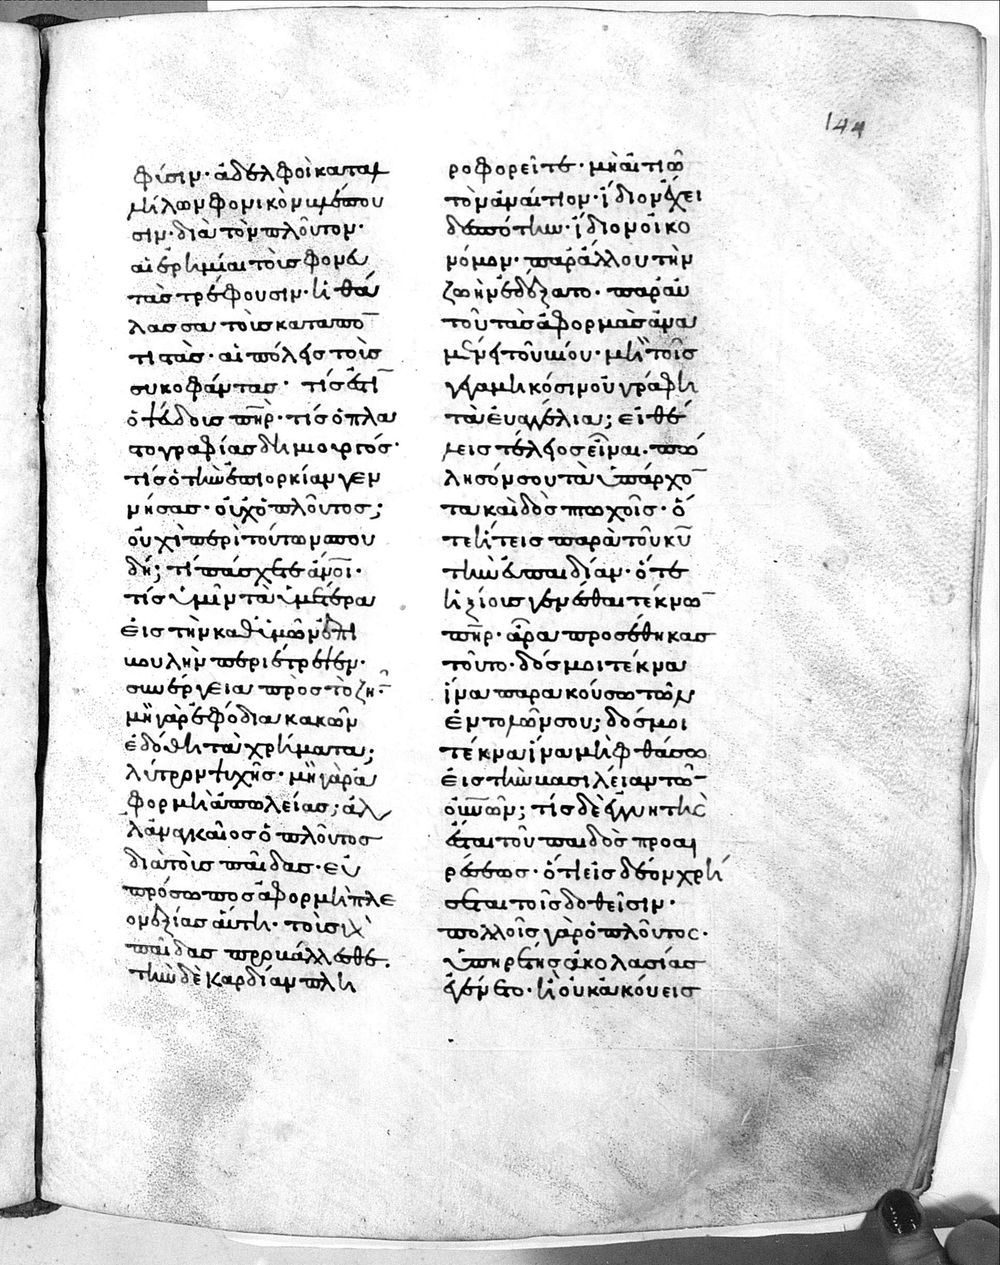 144
φίσιν· ἀδελφοὶ κατ᾽ ἀλ
λήλων φονικὸν βλέπου
σιν· διὰ τὸν πλοῦτον·
αἱ ἐρημίαι τοὺς φονευ
τὰς τρέφουσιν· ἡ θά
λασσα τοὺς καταπο̅
τιστὰς· αἱ πόλεις τοὺς
συκοφάντας· τίς ἐστι̅
ὁ ψεύδους πη̅ρ· τίς ὁ πλα
στογραφίας δημιουργός·
τίς ὁ τὴν ἐπιορκίαν γεν
νήσας· οὐχ ὁ πλοῦτος;
οὐχὶ περὶ τοῦτον σπου
δή; τί πάσχετε ἄν̅οι·
τίς ὑμῖν τὰ ὑμέτερα
εἰς τὴν καθ᾽ ὑμῶν ἐπι
βουλὴν περιέτρεψεν·
συνέργεια πρὸς τὸ ζῆ̅·
μὴ γὰρ ἐφόδια κακῶν
ἐδόθη τὰ χρήματα;
λύτρον ψυχῆς· μὴ γὰρ ἀ
φορμὴ ἀπωλείας; ἀλλ
λ᾽ ἀναγκαῖος ὁ πλοῦτος
διὰ τοὺς παῖδας· εὐ
πρόσωπος ἀφορμὴ πλε
ονεξίας αὕτη· τοὺς μὲ̅
παῖδας προβάλλεσθε.
τὴν δὲ καρδίαν πλη
ροφορεῖτε· μὴ αἰτιῶ
τὸν ἀναίτιον· ἴδιον ἔχει
δεσπότην· ἴδιον οἰκο
νόμον· παρ᾽ ἄλλου τὴν
ζωὴν ἐδέξατο· παρ᾽ αὐ
τοῦ τὰς ἀφορμὰς ἀνα
μένει τοῦ βίου· μὴ τοῖς
γεγαμηκόσιν οὐ γράφη
τὰ εὐαγγέλια; εἰ θέ
λεις τέλειος εἶναι· πώ
λησόν σου τὰ ὑπάρχο̅
τα καὶ δὸς πτωχοῖς· ὅ
τε ᾐτεῖς παρὰ τοῦ κυ̅
τὴν εὐπαιδίαν· ὅτε
ἠξίοις γενέσθαι τέκνω̅
πη̅ρ· ἆρα προσέθηκας
τοῦτο· δός μοι τέκνα
ἵνα παρακούσω τῶν
ἐντολῶν σου; δός μοι
τέκνα ἵνα μὴ φθάσω
εἰς τὴν βασιλείαν τῶ̅
οὐν̅ῶν; τίς δὲ ἐγγυητὴς
ἔσται τοῦ παιδὸς προαι
ρέσεως· ὅτι εἰς δέον χρή
σεται τοῖς δοθεῖσιν·
πολλοῖς γὰρ ὁ πλοῦτος·
ὑπηρέτης ἀκολασίας
ἐγένετο· ἢ οὐκ ἀκούεις